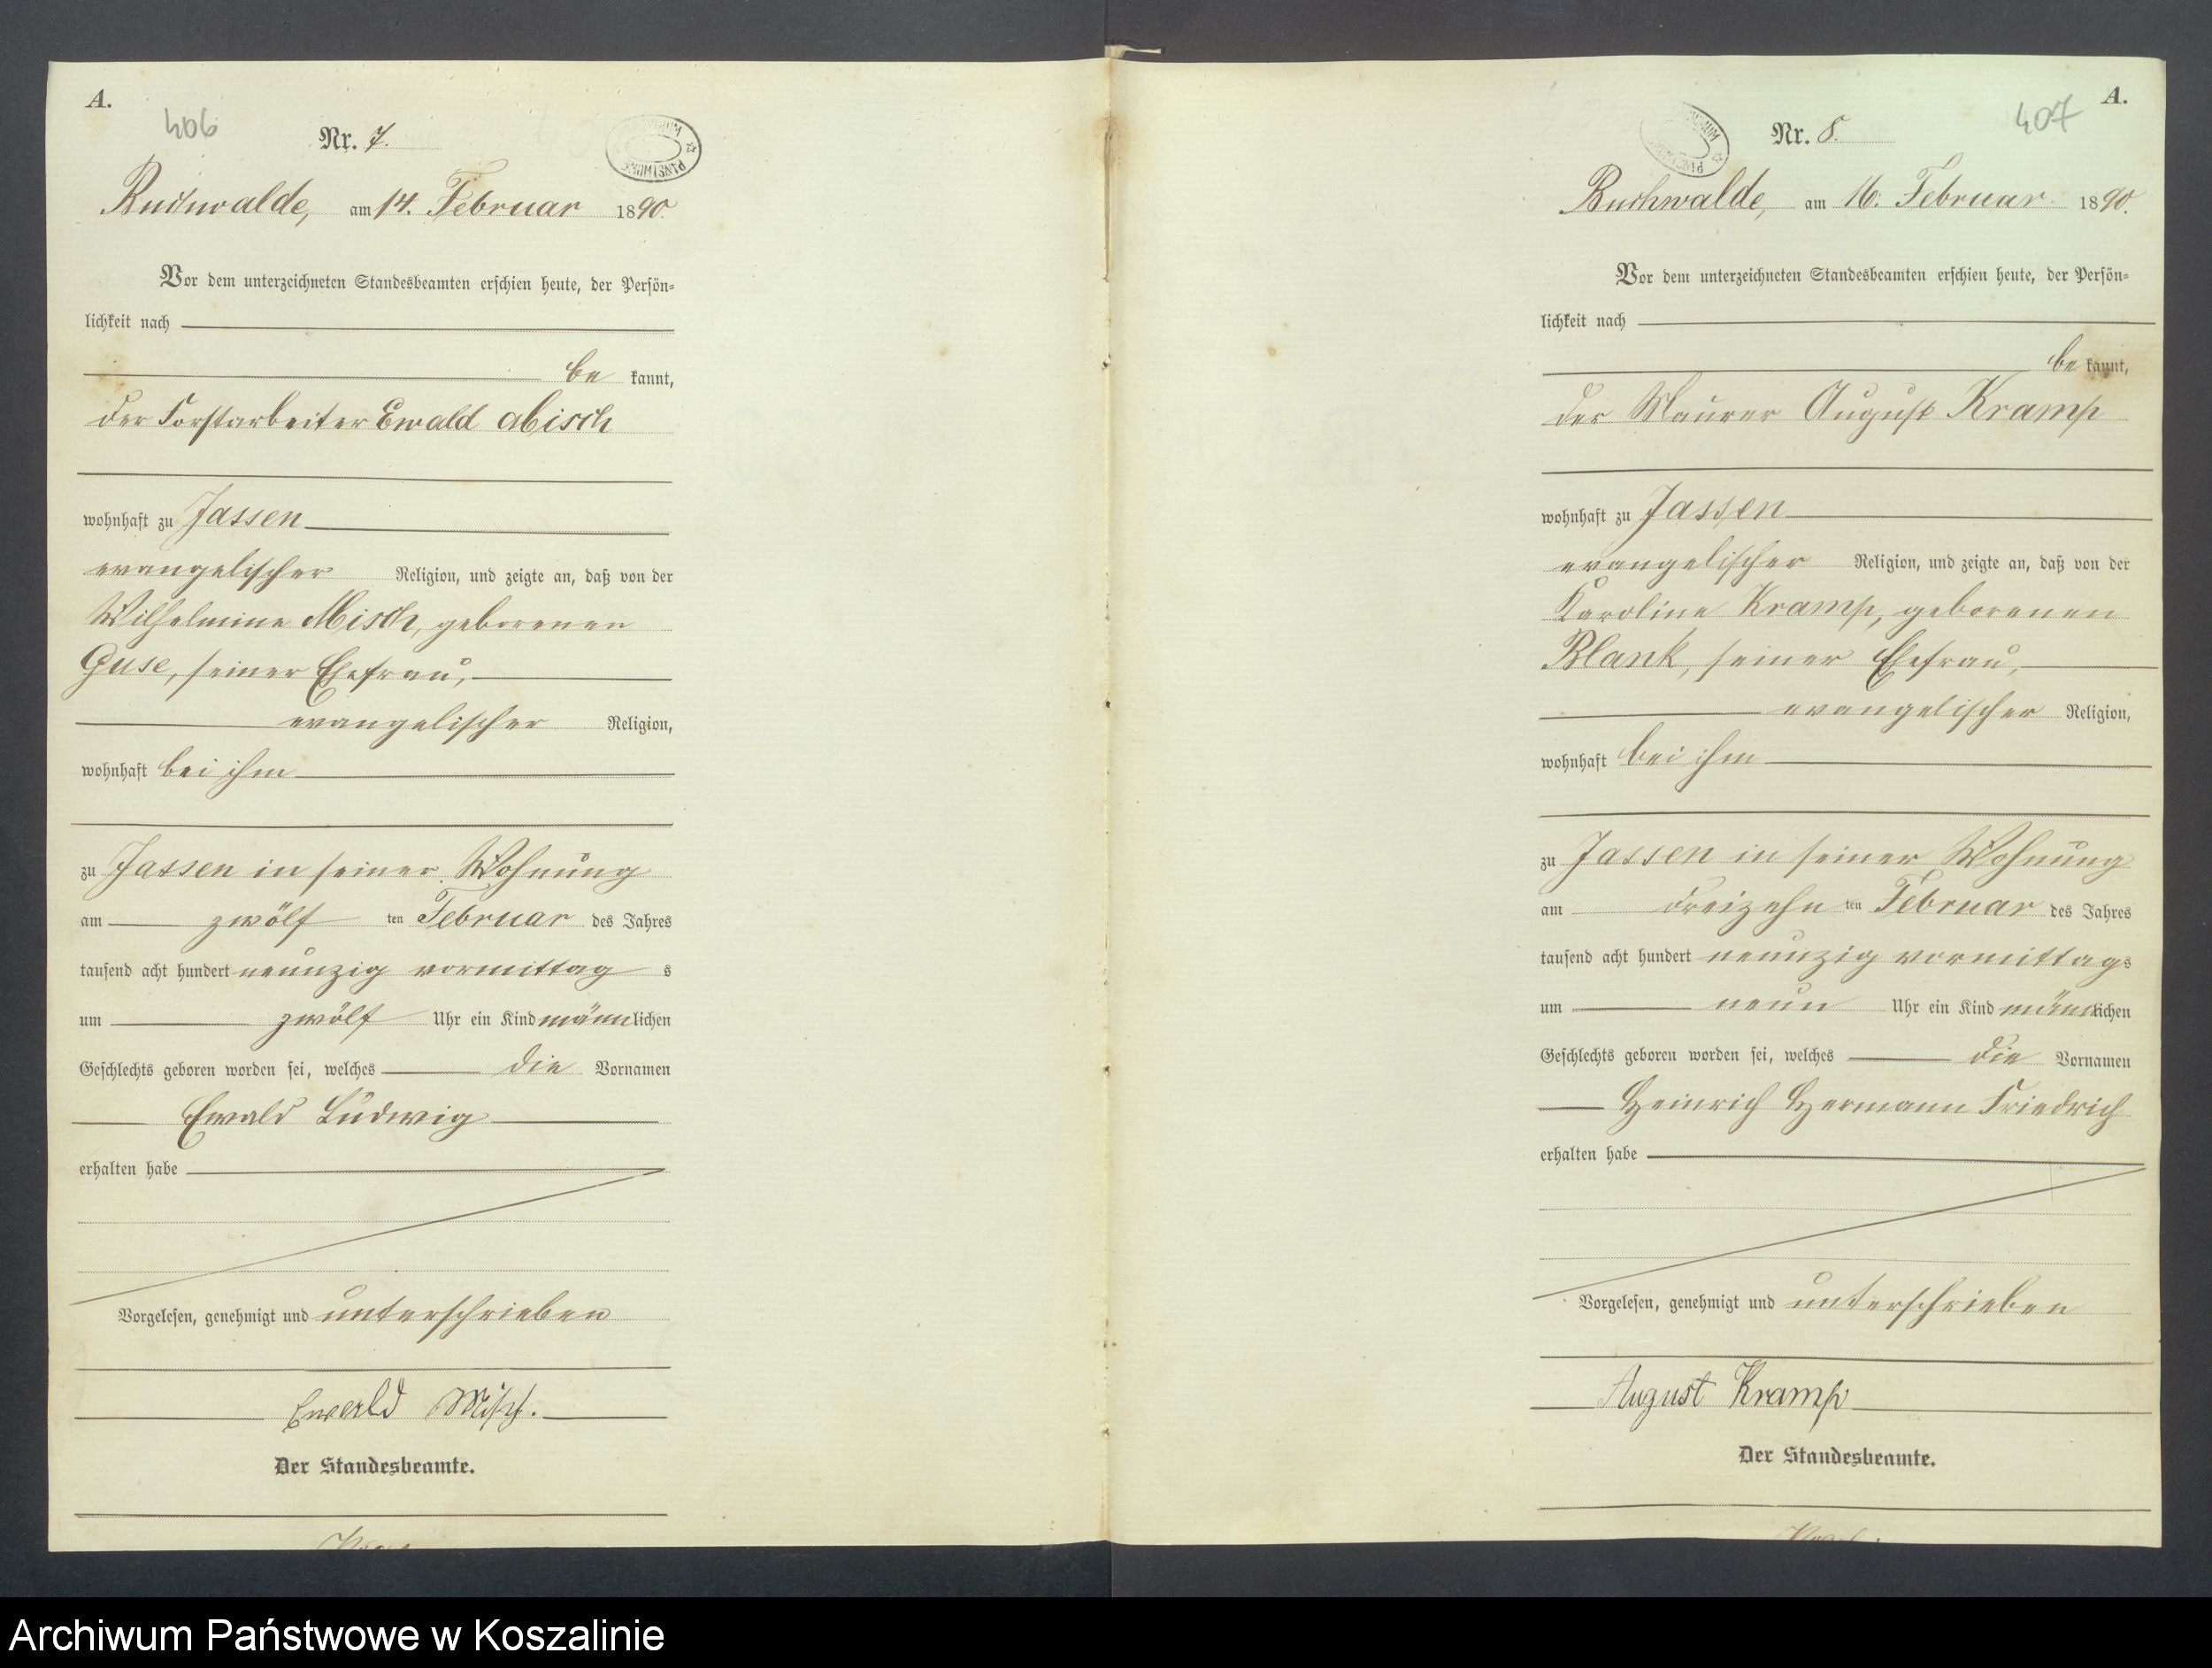 A.
406
Nr. 7.
Buchwalde, am 14. Februar 1890.
Vor dem unterzeichneten Standesbeamten erschien heute, der Persön-
lichkeit nach
be kannt,
der Forstarbeiter Ewald Misch
wohnhaft zu Jassen
evangelischer Religion, und zeigte an, daß von der
Wilhelmine Misch, geborenen
Guse, seiner Ehefrau,
evangelischer Religion,
wohnhaft bei ihm
zu Jassen in seiner Wohnung
am zwölf ten Februar des Jahres
tausend acht hundert neunzig vormittag s
um zwölf Uhr ein Kind männlichen
Geschlechts geboren worden sei, welches die Vornamen
Ewald Ludwig
erhalten habe
Vorgelesen, genehmigt und unterschrieben
Ewald Misch.
Der Standesbeamte.
A.
407
Nr. 8.
Buchwalde, am 16. Februar 1890.
Vor dem unterzeichneten Standesbeamten erschien heute, der Persön-
lichkeit nach
be kannt,
der Maurer August Kramp
wohnhaft zu Jassen
evangelischer Religion, und zeigte an, daß von der
Karoline Kramp, geborenen
Blank, seiner Ehefrau,
evangelischer Religion,
wohnhaft bei ihm
zu Jassen in seiner Wohnung
am dreizehn ten Februar des Jahres
tausend acht hundert neunzig vormittags
um neun Uhr ein Kind männlichen
Geschlechts geboren worden sei, welches die Vornamen
Heinrich Hermann Friedrich
erhalten habe
Vorgelesen, genehmigt und unterschrieben
August Kramp
Der Standesbeamte.
Archiwum Państwowe w Koszalinie